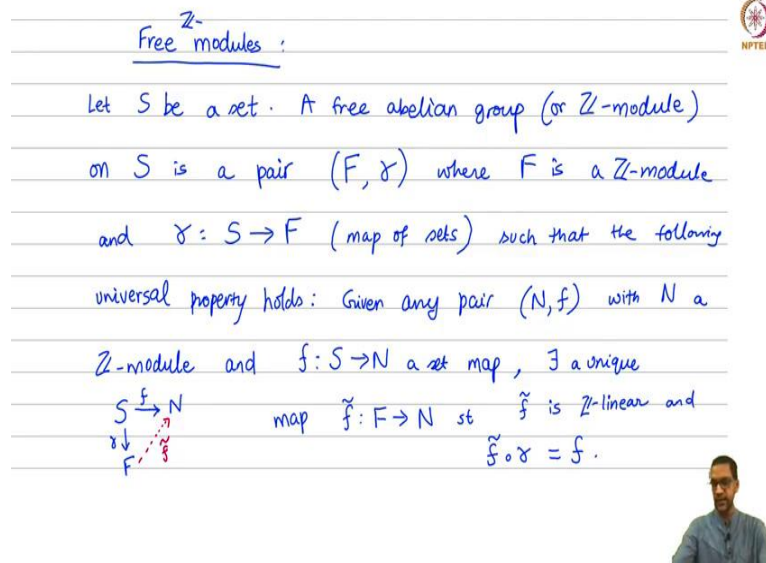 ℤ-
Free modules :
Let S be a set. A free abelian group (or ℤ-module)
on S is a pair (F, γ) where F is a ℤ-module
and γ : S → F (map of sets) such that the following
universal property holds: Given any pair (N, f) with N a
ℤ-module and f : S → N a set map, ∃ a unique
S f→ N map f̃ : F → N st f̃ is ℤ-linear and
γ↓ f̃ f̃ ∘ γ = f.
F
NPTEL